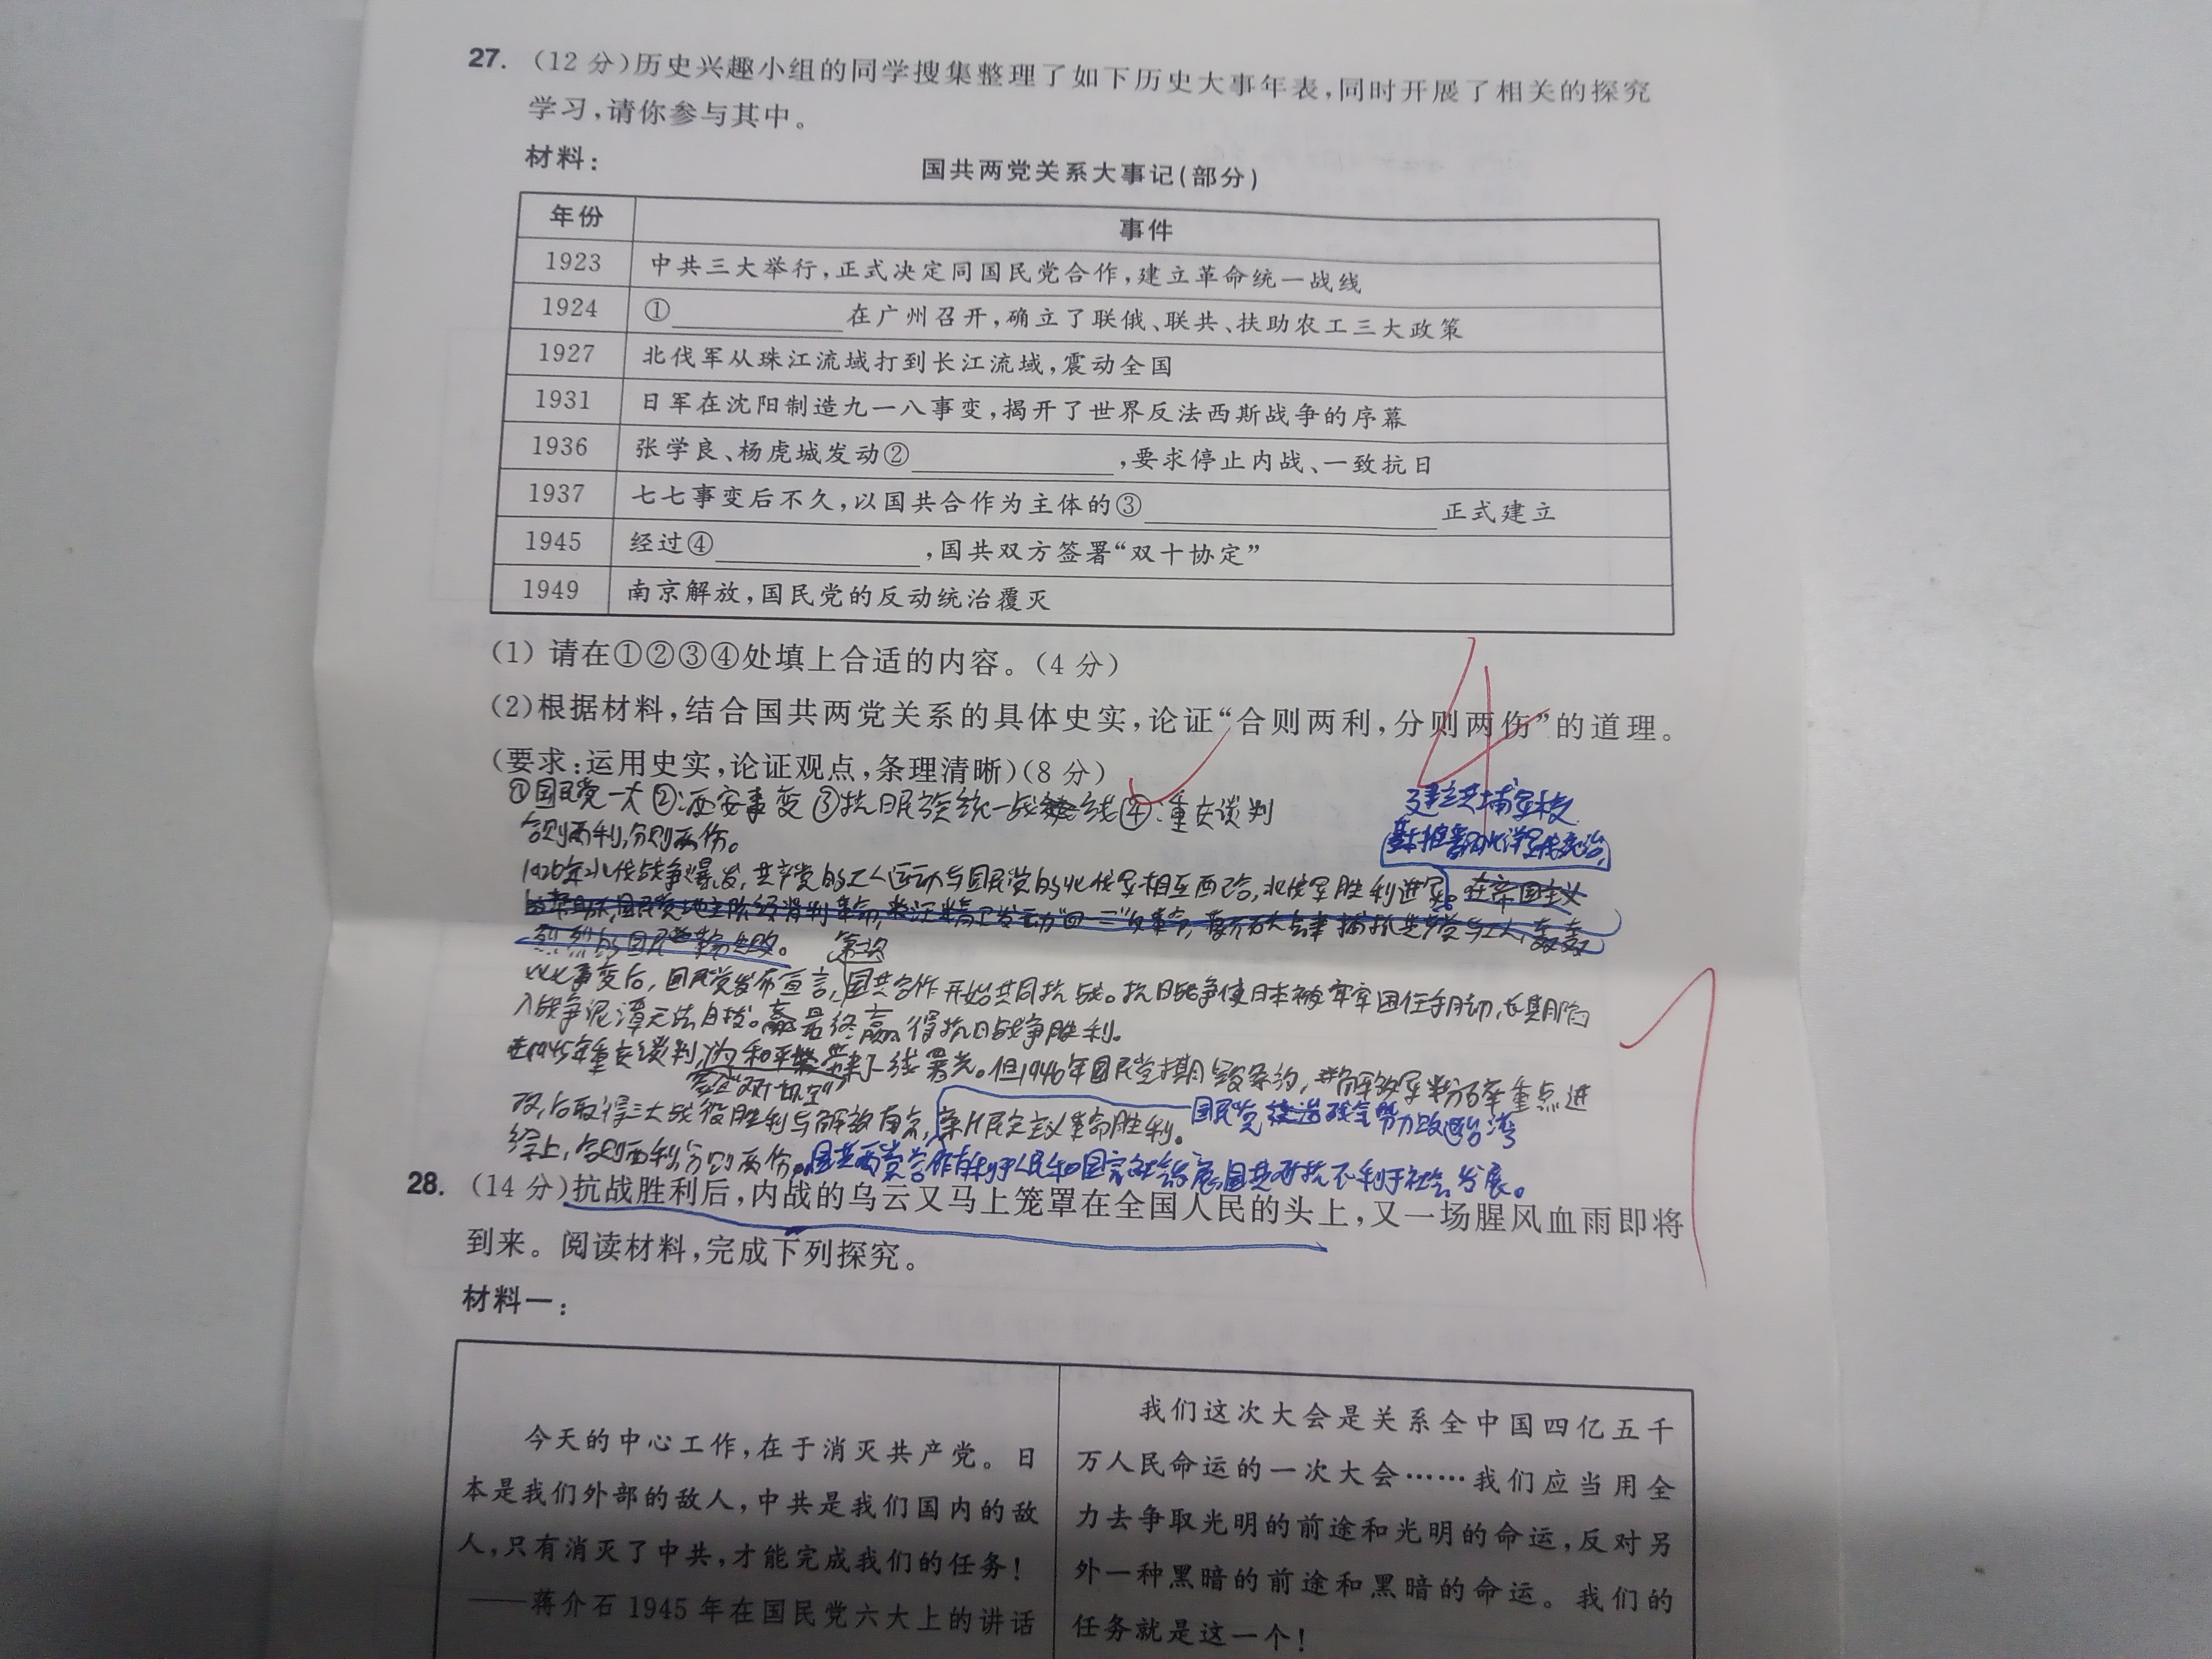 27. (12 分)历史兴趣小组的同学搜集整理了如下历史大事年表,同时开展了相关的探究
学习,请你参与其中。
材料:
国共两党关系大事记(部分)
年份 事件
1923 中共三大举行,正式决定同国民党合作,建立革命统一战线
1924 ①__________在广州召开,确立了联俄、联共、扶助农工三大政策
1927 北伐军从珠江流域打到长江流域,震动全国
1931 日军在沈阳制造九一八事变,揭开了世界反法西斯战争的序幕
1936 张学良、杨虎城发动②__________,要求停止内战、一致抗日
1937 七七事变后不久,以国共合作为主体的③__________正式建立
1945 经过④__________,国共双方签署“双十协定”
1949 南京解放,国民党的反动统治覆灭
(1) 请在①②③④处填上合适的内容。(4 分)
4
(2)根据材料,结合国共两党关系的具体史实,论证“合则两利,分则两伤”的道理。
(要求:运用史实,论证观点,条理清晰)(8 分)
①国民党一大 ②西安事变 ③抗日民族统一战线 ④重庆谈判
建立黄埔军校
合则两利,分则两伤。
基本推翻北洋军阀统治,
1926年北伐战争爆发,共产党的工人运动与国民党的北伐军相互配合,北伐军胜利进军。
第二次
七七事变后,国民党发布宣言,国共合作开始共同抗战。抗日战争使日本被牢牢困住手脚,长期陷
入战争泥潭无法自拔。最终赢得抗日战争胜利。
1945年重庆谈判,为和平带来了一线曙光。但1946年国民党撕毁条约,解放军粉碎重点进
签定“双十协定”
攻,后取得三大战役胜利与解放南京,新民主主义革命胜利。
国民党残余势力败退台湾
综上,合则两利,分则两伤。国共两党合作有利于人民和国家社会发展,国共对抗不利于社会发展。
7
28. (14 分)抗战胜利后,内战的乌云又马上笼罩在全国人民的头上,又一场腥风血雨即将
到来。阅读材料,完成下列探究。
材料一:
今天的中心工作,在于消灭共产党。日
本是我们外部的敌人,中共是我们国内的敌
人,只有消灭了中共,才能完成我们的任务!
——蒋介石 1945 年在国民党六大上的讲话
我们这次大会是关系全中国四亿五千
万人民命运的一次大会……我们应当用全
力去争取光明的前途和光明的命运,反对另
外一种黑暗的前途和黑暗的命运。我们的
任务就是这一个!